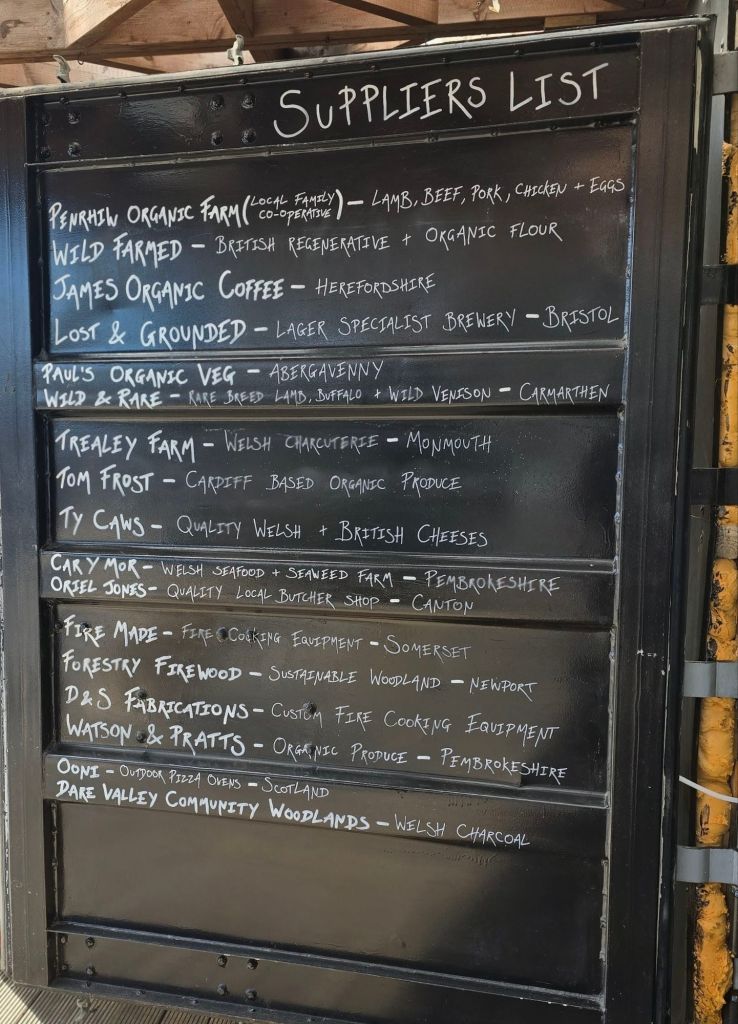 SUPPLIERS LIST
PENRHIW ORGANIC FARM (LOCAL FAMILY CO-OPERATIVE) – LAMB, BEEF, PORK, CHICKEN + EGGS
WILD FARMED – BRITISH REGENERATIVE + ORGANIC FLOUR
JAMES ORGANIC COFFEE – HEREFORDSHIRE
LOST & GROUNDED – LAGER SPECIALIST BREWERY – BRISTOL
PAUL'S ORGANIC VEG – ABERGAVENNY
WILD & RARE – RARE BREED LAMB, BUFFALO + WILD VENISON – CARMARTHEN
TREALEY FARM – WELSH CHARCUTERIE – MONMOUTH
TOM FROST – CARDIFF BASED ORGANIC PRODUCE
TY CAWS – QUALITY WELSH + BRITISH CHEESES
CAR Y MOR – WELSH SEAFOOD + SEAWEED FARM – PEMBROKESHIRE
ORIEL JONES – QUALITY LOCAL BUTCHER SHOP – CANTON
FIRE MADE – FIRE COOKING EQUIPMENT – SOMERSET
FORESTRY FIREWOOD – SUSTAINABLE WOODLAND – NEWPORT
D&S FABRICATIONS – CUSTOM FIRE COOKING EQUIPMENT
WATSON & PRATTS – ORGANIC PRODUCE – PEMBROKESHIRE
OONI – OUTDOOR PIZZA OVENS – SCOTLAND
DARE VALLEY COMMUNITY WOODLANDS – WELSH CHARCOAL